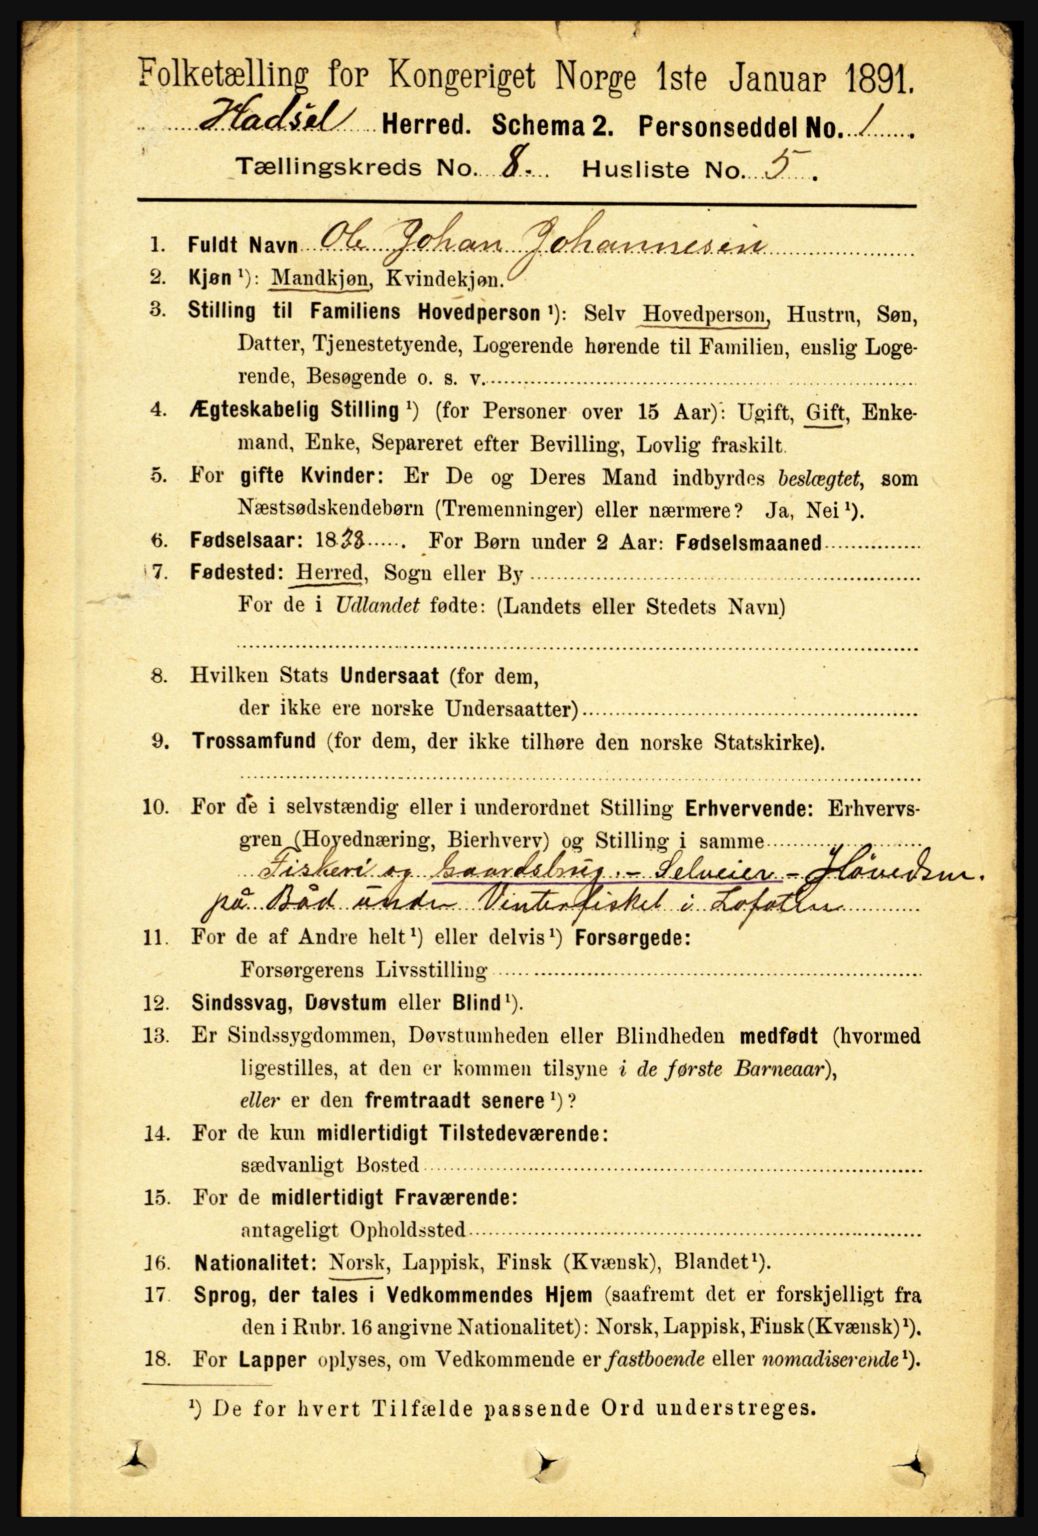 Folketælling for Kongeriget Norge 1ste Januar 1891.
Hadsel Herred. Schema 2. Personseddel No. 1.
Tællingskreds No. 8. Husliste No. 5.
1. Fuldt Navn Ole Johan Johannesen
2. Kjøn ¹): Mandkjøn, Kvindekjøn.
3. Stilling til Familiens Hovedperson ¹): Selv Hovedperson, Hustru, Søn,
Datter, Tjenestetyende, Logerende hørende til Familien, enslig Loge-
rende, Besøgende o. s. v.
4. Ægteskabelig Stilling ¹) (for Personer over 15 Aar): Ugift, Gift, Enke-
mand, Enke, Separeret efter Bevilling, Lovlig fraskilt.
5. For gifte Kvinder: Er De og Deres Mand indbyrdes beslægtet, som
Næstsødskendebørn (Tremenninger) eller nærmere? Ja, Nei ¹).
6. Fødselsaar: 1838. For Børn under 2 Aar: Fødselsmaaned
7. Fødested: Herred, Sogn eller By
For de i Udlandet fødte: (Landets eller Stedets Navn)
8. Hvilken Stats Undersaat (for dem,
der ikke ere norske Undersaatter)
9. Trossamfund (for dem, der ikke tilhøre den norske Statskirke).
10. For de i selvstændig eller i underordnet Stilling Erhvervende: Erhvervs-
gren (Hovednæring, Bierhverv) og Stilling i samme
Fiskeri og Gaardsbrug. - Selveier - Høvedsm.
på Båd under Vinterfisket i Lofoten
11. For de af Andre helt ¹) eller delvis ¹) Forsørgede:
Forsørgerens Livsstilling
12. Sindssvag, Døvstum eller Blind ¹).
13. Er Sindssygdommen, Døvstumheden eller Blindheden medfødt (hvormed
ligestilles, at den er kommen tilsyne i de første Barneaar),
eller er den fremtraadt senere ¹)?
14. For de kun midlertidigt Tilstedeværende:
sædvanligt Bosted
15. For de midlertidigt Fraværende:
antageligt Opholdssted
16. Nationalitet: Norsk, Lappisk, Finsk (Kvænsk), Blandet ¹).
17. Sprog, der tales i Vedkommendes Hjem (saafremt det er forskjelligt fra
den i Rubr. 16 angivne Nationalitet): Norsk, Lappisk, Finsk (Kvænsk) ¹).
18. For Lapper oplyses, om Vedkommende er fastboende eller nomadiserende ¹).
¹) De for hvert Tilfælde passende Ord understreges.